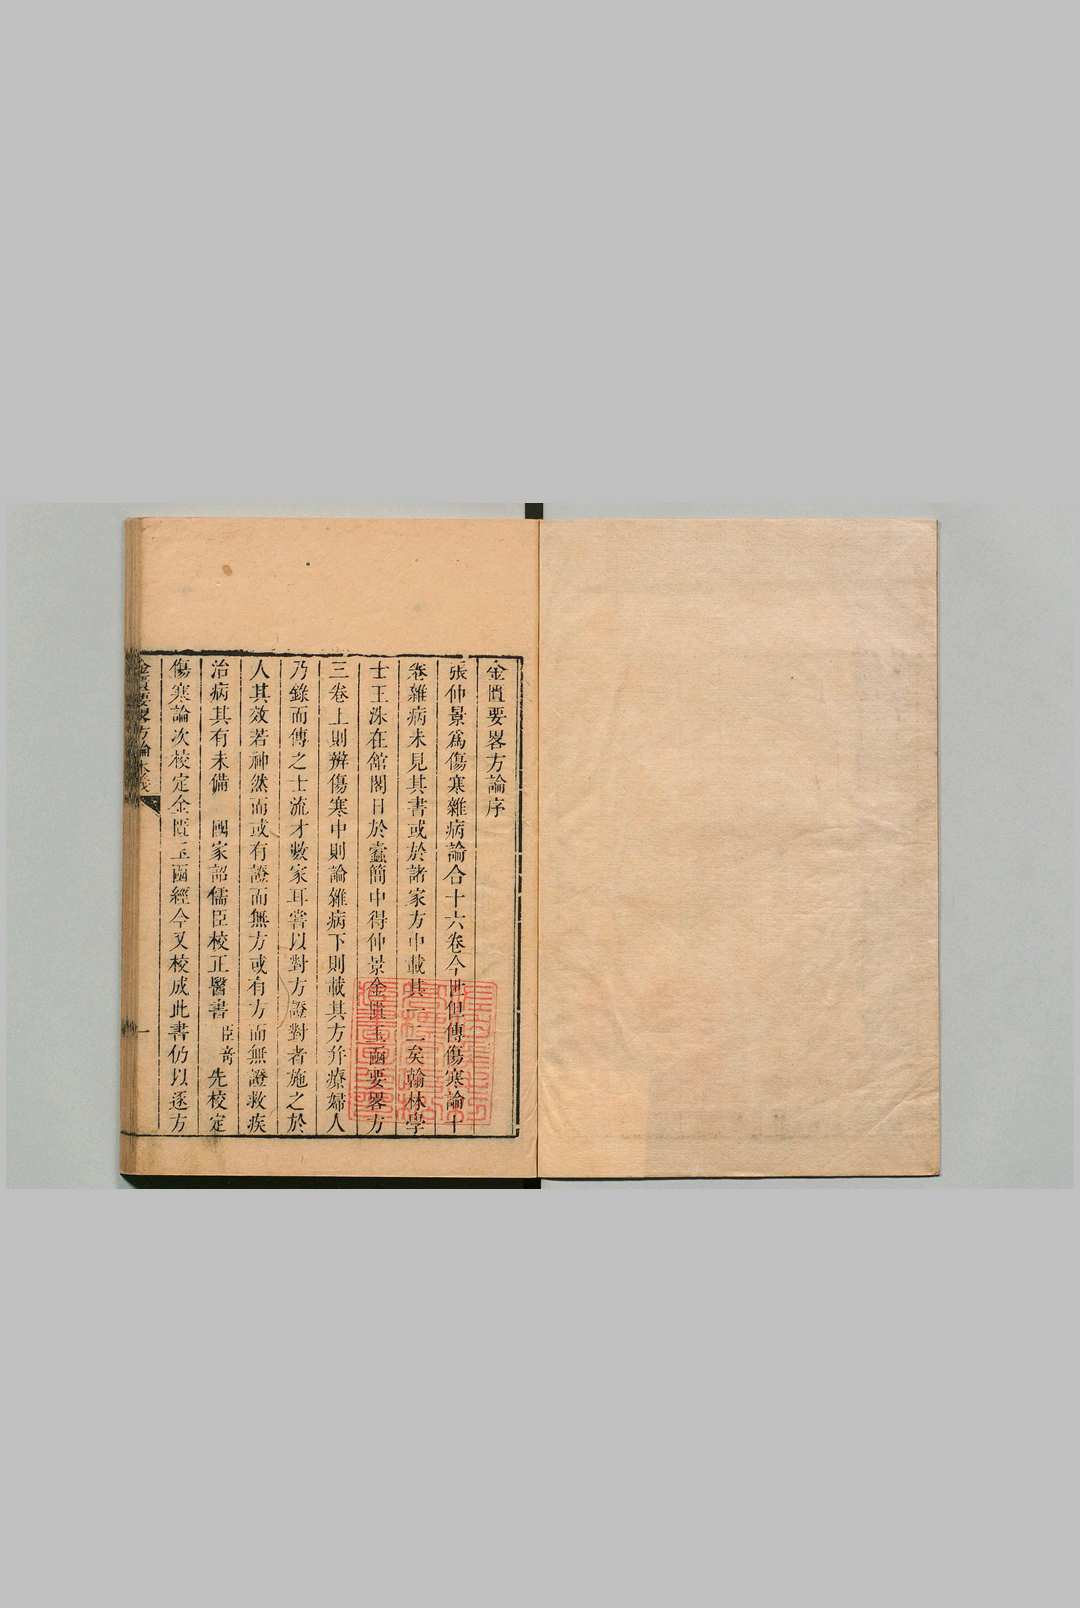 金匱要畧方論序
張仲景爲傷寒雜病論合十六卷今世但傳傷寒論十
卷雜病未見其書或於諸家方中載其一二矣翰林學
士王洙在館閣日於蠹簡中得仲景金匱玉函要畧方
三卷上則辨傷寒中則論雜病下則載其方幷療婦人
乃錄而傳之士流才數家耳嘗以對方證對者施之於
人其效若神然而或有證而無方或有方而無證救疾
治病其有未備 國家詔儒臣校正醫書臣奇先校定
傷寒論次校定金匱玉函經今又校成此書仍以逐方
金匱要畧方論本義
一